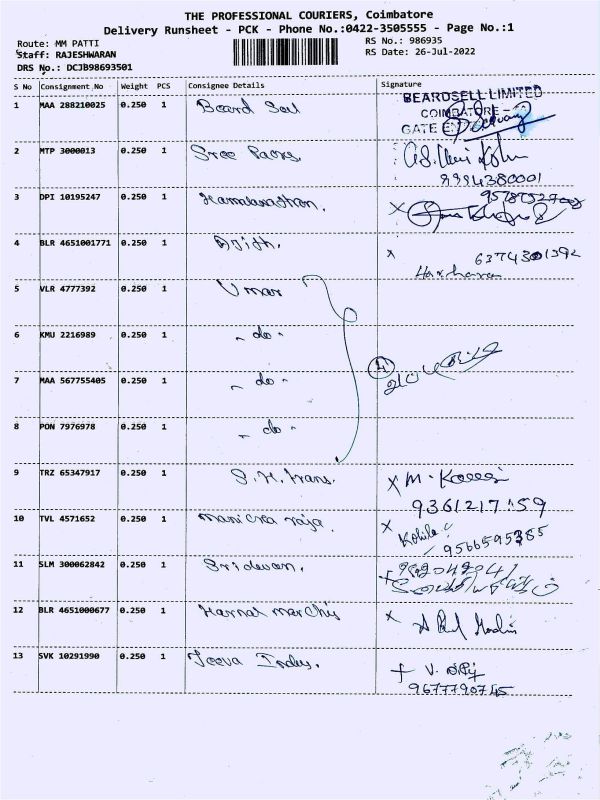 THE PROFESSIONAL COURIERS, Coimbatore
Delivery Runsheet - PCK - Phone No.:0422-3505555 - Page No.:1
Route: MM PATTI
Staff: RAJESHWARAN
DRS No.: DCJB98693501
RS No.: 986935
RS Date: 26-Jul-2022
S No Consignment No Weight PCS Consignee Details Signature
1 MAA 288210025 0.250 1 Beard Sell BEARDSELL LIMITED
COIMBATORE
GATE
2 MTP 3000013 0.250 1 Sree Packs.
9994380001
3 DPI 10195247 0.250 1 x
4 BLR 4651001771 0.250 1 x 6374301392
Hariharan
5 VLR 4777392 0.250 1 Umar
6 KMU 2216989 0.250 1 - do -
7 MAA 567755405 0.250 1 - do - 4
8 PON 7976978 0.250 1 - do -
9 TRZ 65347917 0.250 1 S.H. trans. x M.
10 TVL 4571652 0.250 1 manicka raja. x Kokila
9566595385
11 SLM 300062842 0.250 1 Sridevan.
12 BLR 4651000677 0.250 1 x
13 SVK 10291990 0.250 1 Jeeva Indus. V.
9677790745